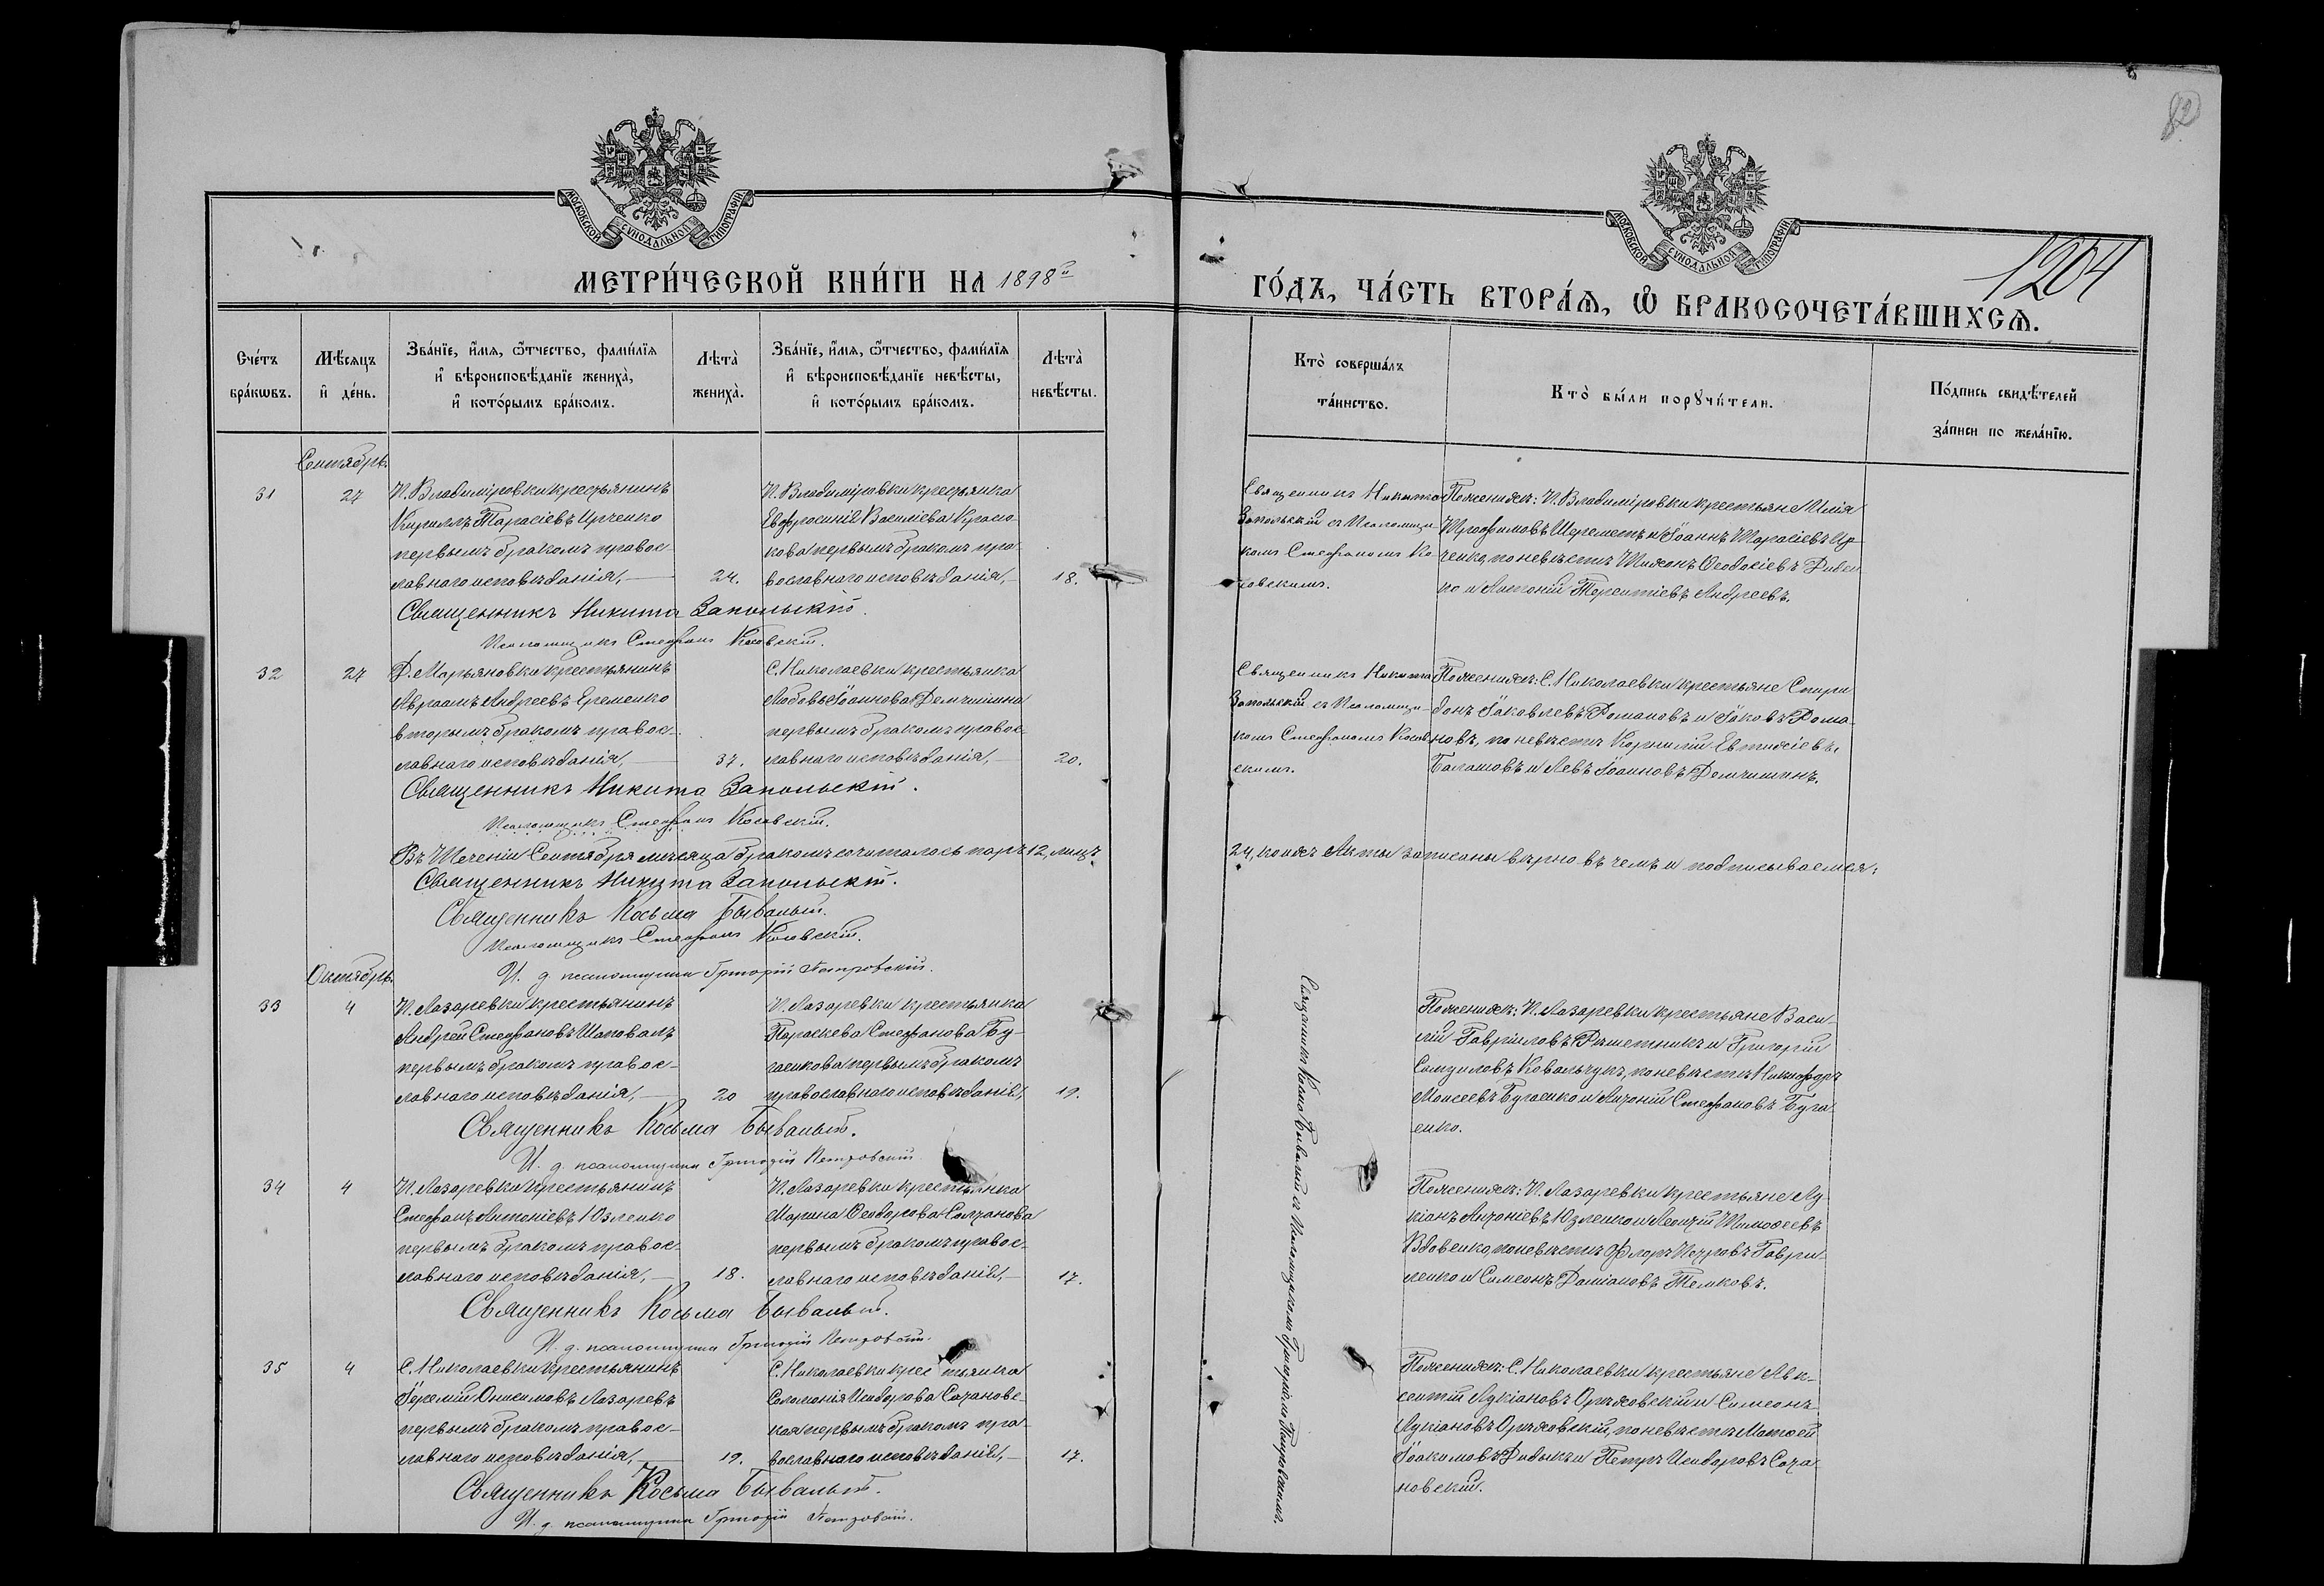 82
МОСКОВСКОЙ СѴНОДАЛЬНОЙ ТИПОГРАФІИ
МОСКОВСКОЙ СѴНОДАЛЬНОЙ ТИПОГРАФІИ
1204
МЕТРИ́ЧЕСКОЙ КНИ́ГИ НА 1898й
ГО́ДЪ, ЧА́СТЬ ВТОРА́Ѧ, Ѡ БРАКОСОЧЕТА́ВШИХСѦ.
Сче́тъ бра́кѡвъ.
Мѣ́сяцъ и҆ де́нь.
Зва́нїе, и҆́мѧ, ѻ҆́тчество, фами́лїѧ
и҆ вѣроисповѣ́данїе жениха̀,
и҆ кото́рымъ бра́комъ.
Лѣта̀ жениха̀.
Зва́нїе, и҆́мѧ, ѻ҆́тчество, фами́лїѧ
и҆ вѣроисповѣ́данїе невѣ́сты,
и҆ кото́рымъ бра́комъ.
Лѣта̀ невѣ́сты.
Кто̀ соверша́лъ
та́инство.
Кто̀ бы́ли порꙋчи́тели.
По́дпись свидѣ́телей
за́писи по жела́нїю.
Сентябрь.
31
27
П. Владиміровки крестьянинъ
Кириллъ Тарасіевъ Ирченко
первымъ бракомъ правос-
лавнаго исповѣданія, —
24.
П. Владиміровки крестьянка
Евфросинія Василіева Красно-
кова первымъ бракомъ пра-
вославнаго исповѣданія, —
18.
Священникъ Никита
Запольскій съ Псаломщи-
комъ Стефаномъ Ко-
совскимъ.
По женихѣ: П. Владиміровки крестьяне Илія
Трофимовъ Шереметъ и Іоаннъ Тарасіевъ Ир-
ченко, по невѣстѣ Тихонъ Ѳеодосіевъ Диден-
ко и Антоній Терентіевъ Андреевъ.
Священникъ Никита Запольскій.
Псаломщикъ Стефанъ Косовскій.
32
27
Д. Марьяновки крестьянинъ
Авраамъ Андреевъ Еременко
вторымъ бракомъ правос-
лавнаго исповѣданія, —
37.
С. Николаевки крестьянка
Любовь Іоаннова Демчишина
первымъ бракомъ правос-
лавнаго исповѣданія, —
20.
Священникъ Никита
Запольскій съ Псаломщи-
комъ Стефаномъ Косов-
скимъ.
По женихѣ: С. Николаевки крестьяне Спири-
донъ Іаковлевъ Романовъ и Іаковъ Рома-
новъ, по невѣстѣ Корнилій Евтихіевъ
Балашовъ и Левъ Іоанновъ Демчишинъ.
Священникъ Никита Запольскій.
Псаломщикъ Стефанъ Косовскій.
Въ теченіи Сентября мѣсяца бракомъ сочиталось паръ 12, лицъ 24, коихъ Акты записаны вѣрно въ чемъ и подписываемся:
Священникъ Никита Запольскій.
Священникъ Косьма Бывалый.
Псаломщикъ Стефанъ Косовскій.
И. д. псаломщика Григорій Петровскій.
Октябрь.
33
4
П. Лазаревки крестьянинъ
Андрей Стефановъ Шаповалъ
первымъ бракомъ правос-
лавнаго исповѣданія, —
20
П. Лазаревки крестьянка
Параскева Стефанова Бу-
гаенкова первымъ бракомъ
православнаго исповѣданія,
19.
Священникъ Косма Бывалый съ Псаломщикомъ Григоріемъ Петровскимъ.
По женихѣ: П. Лазаревки крестьяне Васи-
лій Гавріиловъ Рѣшетникъ и Григорій
Самуиловъ Ковальчукъ, по невѣстѣ Никифоръ
Моисеевъ Бугаенко и Антоній Стефановъ Буга-
енко.
Священникъ Косьма Бывалый.
И. д. псаломщика Григорій Петровскій
34
4
П. Лазаревки крестьянинъ
Стефанъ Антоніевъ Юзленко
первымъ бракомъ правос-
лавнаго исповѣданія, —
18.
П. Лазаревки крестьянка
Марина Ѳеодорова Салтанова
первымъ бракомъ правос-
лавнаго исповѣданія, —
17.
По женихѣ: П. Лазаревки крестьяне Лу-
кіанъ Антоніевъ Юзленко и Леонтій Тимоѳеевъ
Вдовенко, по невѣстѣ Флоръ Петровъ Гаври-
ленко и Симеонъ Даміановъ Темковъ.
Священникъ Косьма Бывалый.
И. д. псаломщика Григорій Петровскій.
35
4
С. Николаевки крестьянинъ
Іеремій Онисимовъ Лазаревъ
первымъ бракомъ правос-
лавнаго исповѣданія, —
19.
С. Николаевки крестьянка
Соломонія Исидорова Сочановс-
кая первымъ бракомъ пра-
вославнаго исповѣданія, —
17.
По женихѣ: С. Николаевки крестьяне Авк-
сентій Лукіановъ Орѣховскій и Симеонъ
Лукіановъ Орѣховскій, по невѣстѣ Матѳей
Іоакимовъ Дидыкъ и Петръ Исидоровъ Соча-
новскій.
Священникъ Косьма Бывалый.
И. д. псаломщика Григорій Петровскій.